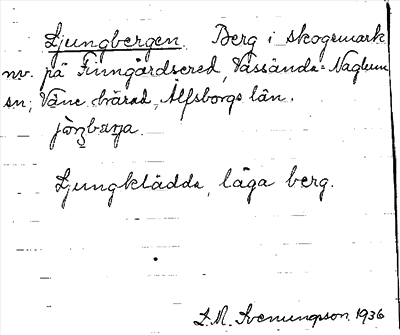 Ljungbergen. Berg i skogsmark
nv. på Finngårdsered, Vassända-Naglum
sn, Väne härad, Älfsborgs län.
Ljungklädda, låga berg.
L.M. Svenungsson 1936